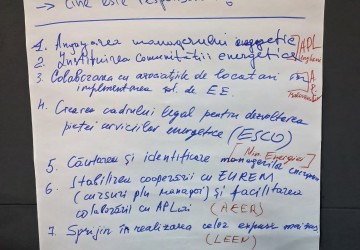 → Cine este responsabil
1. Angajarea managerului energetic
2. Instituirea Comunității energetice
3. Colaborarea cu asociațiile de locatari
implementarea sol. de EE.
4. Crearea cadrului legal pentru dezvoltarea
pieței serviciilor energetice (ESCO)
5. Căutarea și identificare managerilor europeni
6. Stabilirea cooperării cu EUREM
(cursuri ptu manageri) și facilitarea
colaborării cu APL (AEER)
7. Sprijin în realizarea celor expuse
(LEEN)
APL
Min Energiei